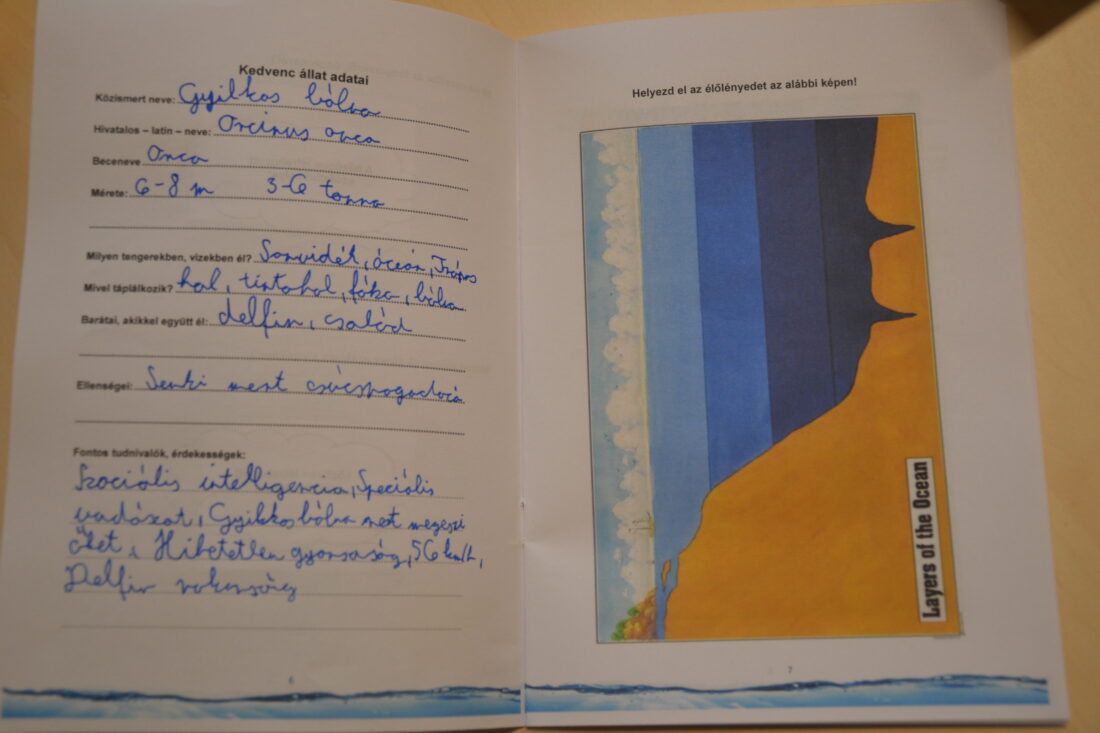 Kedvenc állat adatai
Közismert neve: Gyilkos bálna
Hivatalos – latin – neve: Orcinus orca
Beceneve Orca
Mérete: 6-8 m 3-6 tonna
Milyen tengerekben, vizekben él? Sarvidék, óceán, Trópus
Mivel táplálkozik? hal, tintahal, fóka, bálna
Barátai, akikkel együtt él: delfin, család
Ellenségei: Senki mert csúcsragadozó
Fontos tudnivalók, érdekességek:
Szociális intelligencia, Speciális
vadászat, Gyilkosbálna mert megeszi
őket, Hihetetlen gyorsaság, 56 km/h,
Delfin rokonság
6
Helyezd el az élőlényedet az alábbi képen!
Layers of the Ocean
7